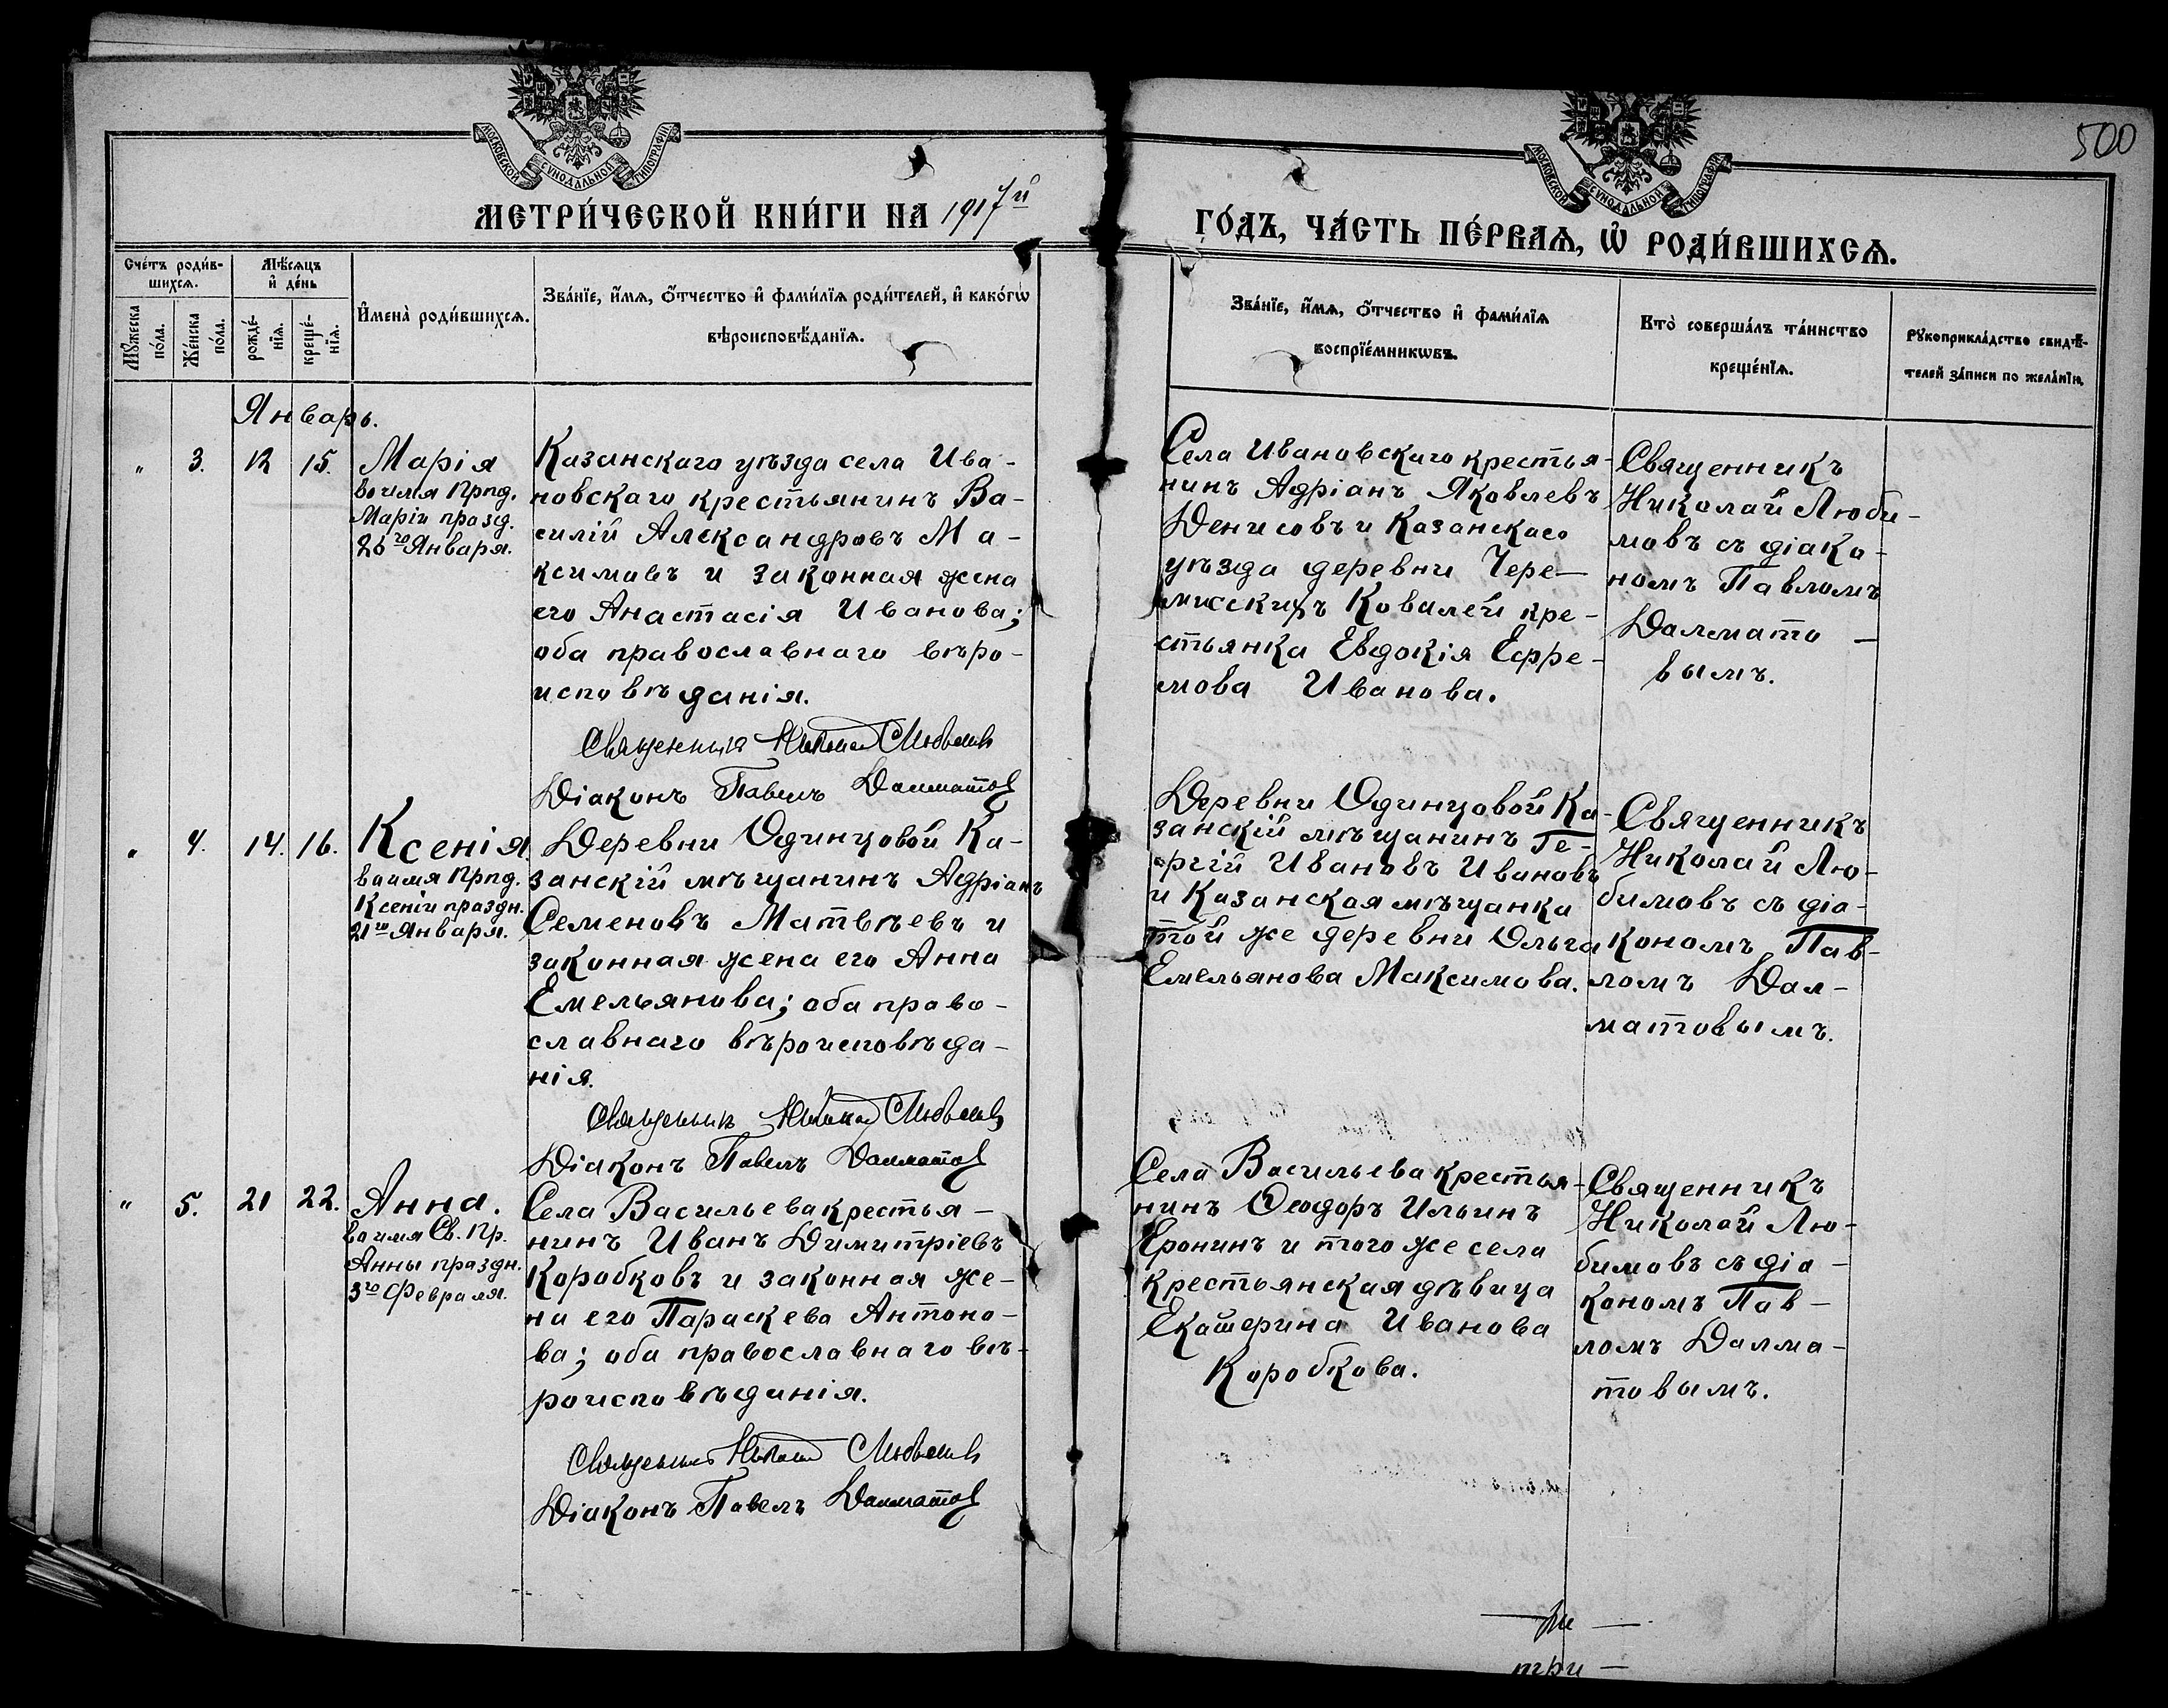 500
МОСКОВСКОЙ СѴНОДАЛЬНОЙ ТИПОГРАФІИ
МОСКОВСКОЙ СѴНОДАЛЬНОЙ ТИПОГРАФІИ
МЕТРИ́ЧЕСКОЙ КНИ́ГИ НА 1917й
ГО́ДЪ, ЧА́СТЬ ПЕ́РВАѦ, Ѡ҆ РОДИ́ВШИХСѦ.
Сче́тъ роди́в-
шихсѧ.
Мꙋ́жеска по́ла.
Же́нска по́ла.
Мѣ́сѧцъ
и҆ де́нь
рожде́-
нїѧ.
креще́-
нїѧ.
И҆мена̀ роди́вшихсѧ.
Зва́нїе, и҆́мѧ, ѻ҆́тчество и҆ фами́лїѧ роди́телей, и҆ како́гѡ
вѣроисповѣ́данїѧ.
Зва́нїе, и҆́мѧ, ѻ҆́тчество и҆ фами́лїѧ
воспрїе́мникѡвъ.
Кто̀ соверша́лъ та́инство
креще́нїѧ.
Рꙋкоприкла́дство свидѣ́-
телей за́писи по жела́нїю.
Январь.
" 3. 12 15.
Марія
во имя Прпд.
Маріи празд.
26го Января.
Казанскаго уѣзда села Ива-
новскаго крестьянинъ Ва-
силій Александровъ Ма-
ксимовъ и законная жена
его Анастасія Иванова;
оба православнаго вѣро-
исповѣданія.
Священникъ Николай Любимовъ
Діаконъ Павелъ Далматов
Села Ивановскаго крестья-
нинъ Адріанъ Яковлевъ
Денисовъ и Казанскаго
уѣзда деревни Чере-
мисскихъ Ковалей кре-
стьянка Евдокія Ефре-
мова Иванова.
Священникъ
Николай Люби-
мовъ съ діако-
номъ Павломъ
Далмато-
вымъ.
" 4. 14. 16.
Ксенія
во имя Прпд.
Ксеніи праздн.
21го Января.
Деревни Одинцовой Ка-
занскій мѣщанинъ Адріанъ
Семеновъ Матвѣевъ и
законная жена его Анна
Емельянова; оба право-
славнаго вѣроисповѣда-
нія.
Священникъ Николай Любимовъ
Діаконъ Павелъ Далматов
Деревни Одинцовой Ка-
занскій мѣщанинъ Ге-
оргій Ивановъ Ивановъ
и Казанская мѣщанка
той же деревни Ольга
Емельянова Максимова.
Священникъ
Николай Лю-
бимовъ съ діа-
кономъ Пав-
ломъ Дал-
матовымъ.
" 5. 21 22.
Анна.
во имя Св. Пр.
Анны праздн.
3го Февраля.
Села Васильева крестья-
нинъ Иванъ Димитріевъ
Коробковъ и законная же-
на его Параскева Антоно-
ва; оба православнаго вѣ-
роисповѣданія.
Священникъ Николай Любимовъ
Діаконъ Павелъ Далматов
Села Васильева крестья-
нинъ Ѳеодоръ Ильинъ
Еронинъ и того же села
крестьянская дѣвица
Екатерина Иванова
Коробкова.
Священникъ
Николай Лю-
бимовъ съ діа-
кономъ Пав-
ломъ Далма-
товымъ.
три -